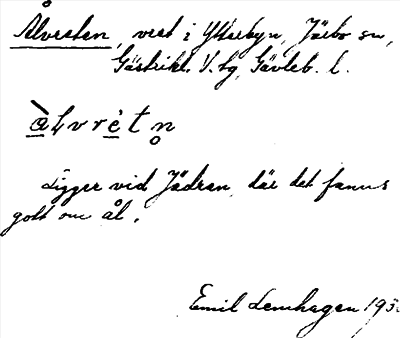 Ålvreten, vret i Ytterbyn, Järbo sn,
Gästrikl. V. tg, Gävleb. l.
àLvrètn̥
Ligger vid Jädran, där det fanns
gott om ål.
Emil Lennhagen 193